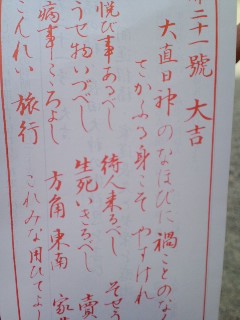 第二十一號 大吉
大直日神のなほびに禍ことのな
さかふる身こそやすけれ
悦び事あるべし 待人来るべし そせう
うせ物いづべし 生死いきるべし 賣
病事こころよし 方角東南 家
こんれい 旅行 これみな用ひてよ